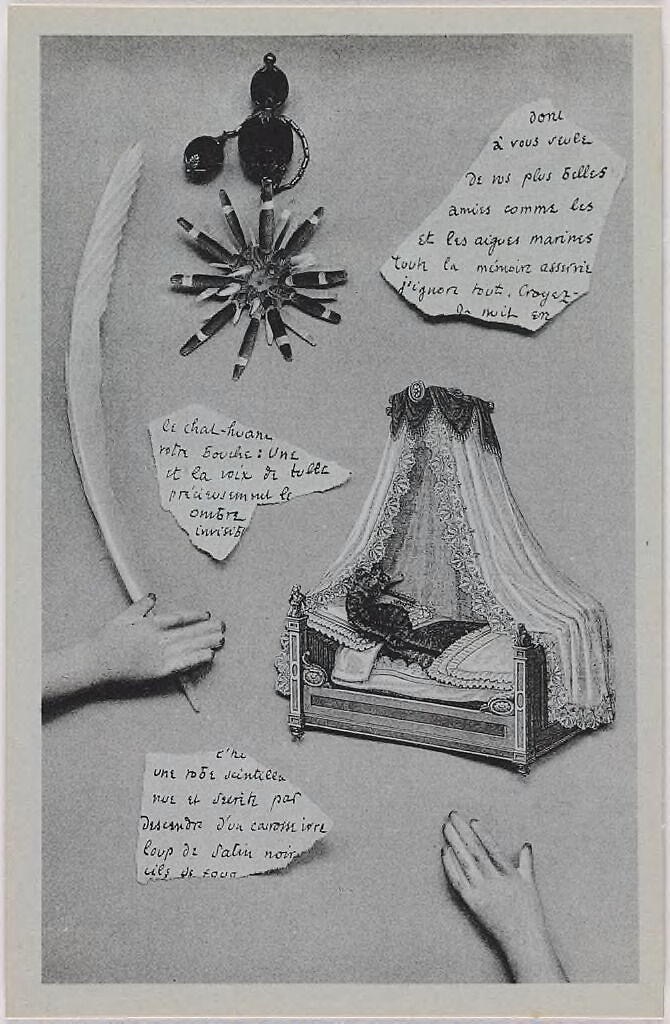 dont
à vous seule
de vos plus belles
amies comme les
et les aigues marines
toute la mémoire asservie
j'ignore tout. Croyez-
da nuit en
le chat-huant
votre bouche : Une
et la voix de tulle
précieusement le
ombre
invisib
une robe scintilla
nue et secrète par
descendre d'un carrosse ivre
loup de satin noir
cils de